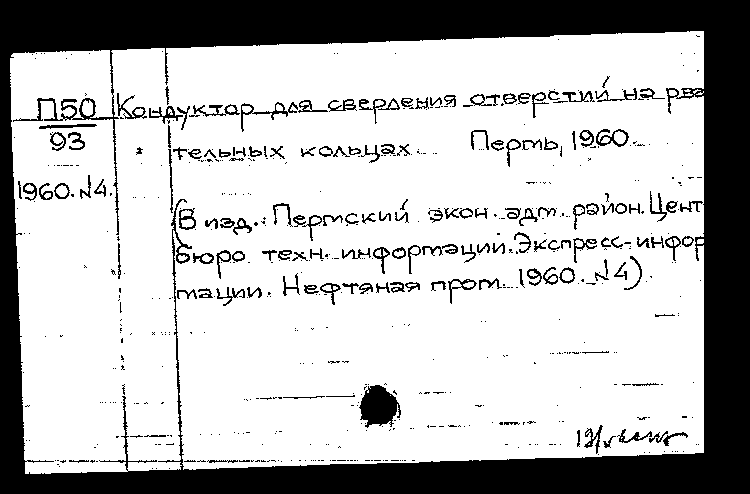 П50 Кондуктор для сверления отверстий на рва
93 * тельных кольцах. Пермь, 1960.
1960. №4.
(В изд.: Пермский экон. адм. район. Цент
бюро техн. информации. Экспресс-инфор
мации. Нефтяная пром. 1960. №4).